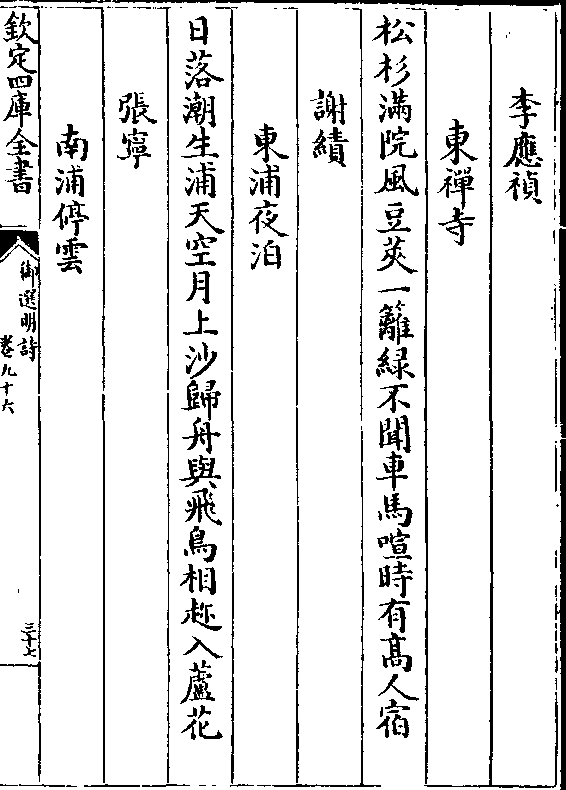 李應禎
東禪寺
松杉滿院風豆莢一籬緑不聞車馬喧時有髙人宿
謝績
東浦夜泊
日落潮生浦天空月上沙歸舟與飛鳥相趂入蘆花
張寧
南浦停雲
欽定四庫全書
御選明詩
卷九十六
三十七